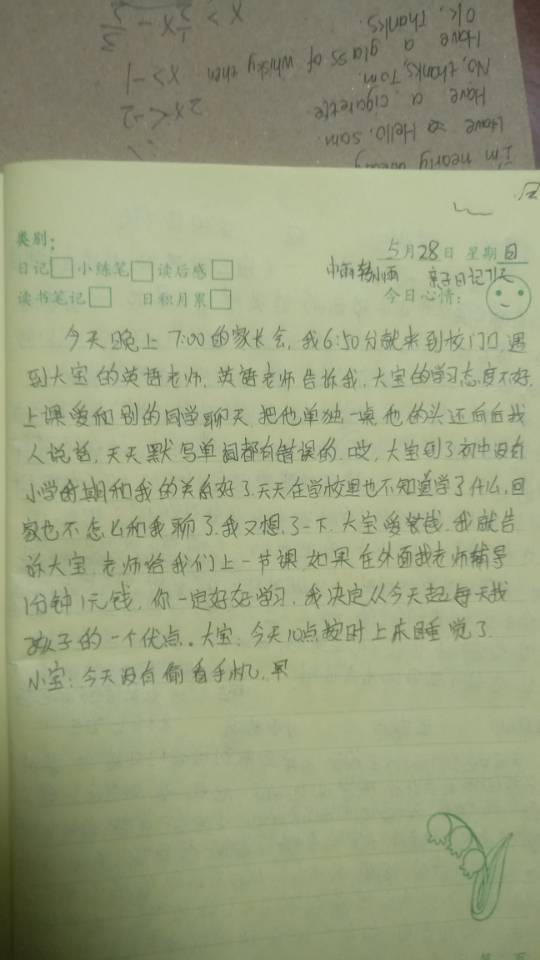 I'm nearly
Have Hello, Sam.
Have a cigarette.
No, thanks, Tom.
Have a glass of whisky then
O.K. Thanks.
2x<-2
x>-1
类别:
日记 小练笔 读后感
读书笔记 日积月累
5月28日 星期日
中雨转小雨 亲子日记
今日心情:
今天晚上7:00的家长会,我6:50分就来到校门口,遇
到大宝的英语老师,英语老师告诉我,大宝的学习态度不好,
上课爱和别的同学聊天,把他单独一桌他的头还向后找
人说话,天天默写单词都有错误的,哎,大宝到了初中没有
小学时期和我的关系好了,天天在学校里也不知道学了什么,回
家也不怎么和我聊了,我又想了一下,大宝爱攒钱,我就告
诉大宝,老师给我们上一节课,如果在外面找老师辅导
1分钟1元钱,你一定好好学习,我决定从今天起每天找
孩子的一个优点。大宝:今天10点按时上床睡觉了
小宝:今天没有偷看手机,早